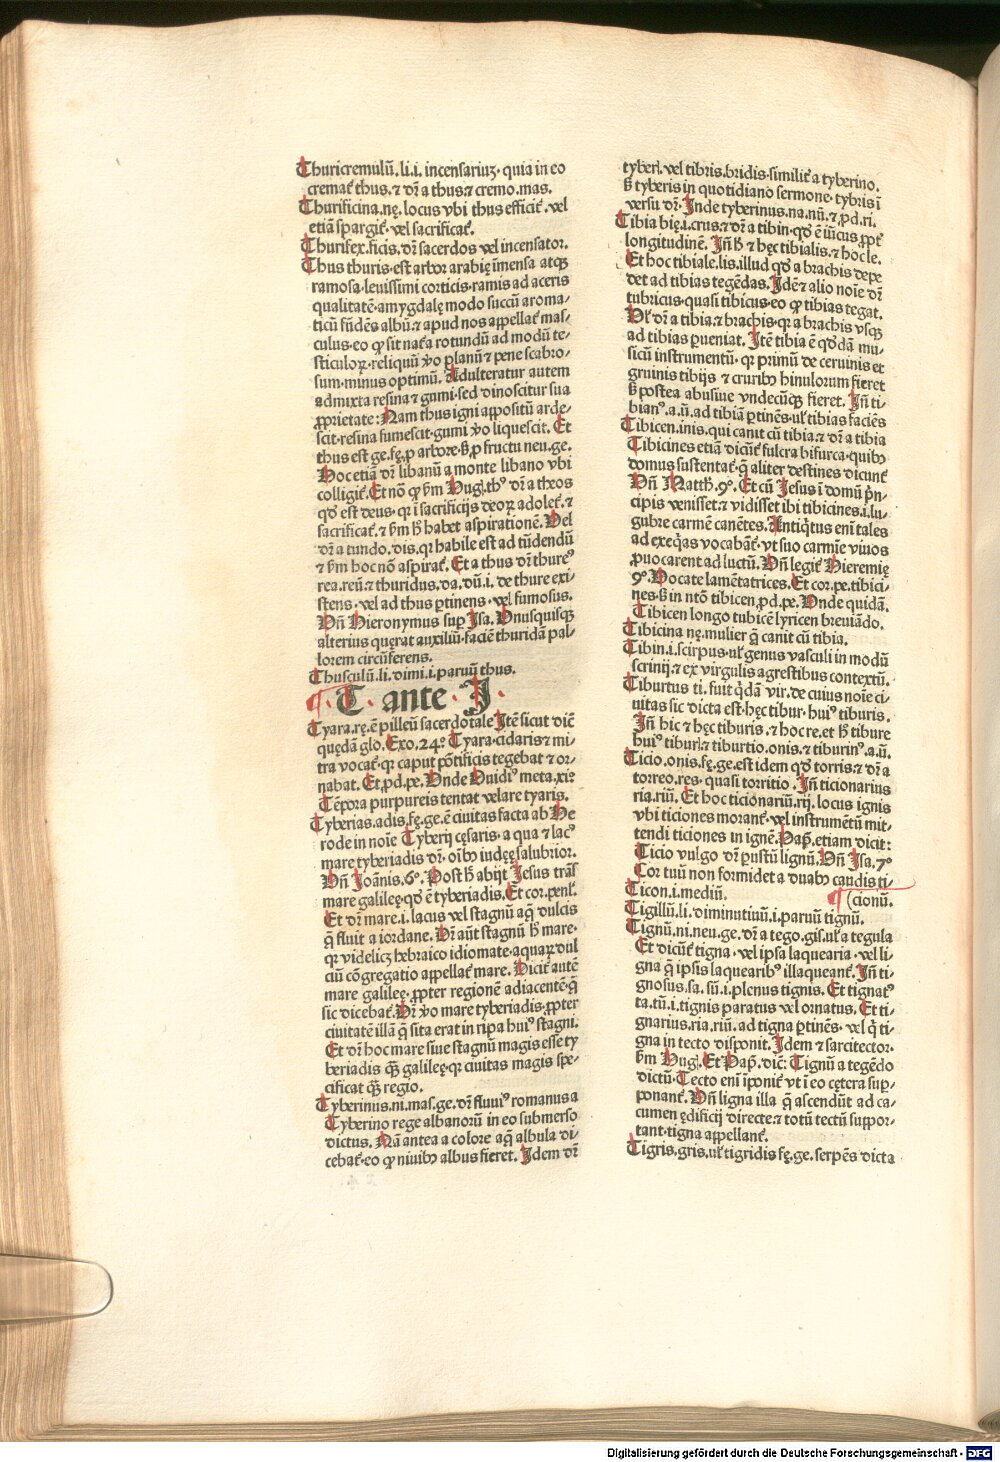 Thuricremulū. li. i. incensariuꝫ· quia in eo
cremat̄ thus. ⁊ dr̄ a thus.⁊ cremo. mas.
Thurificina. nę. locus vbi thus efficit̄. vel
etiā spargit̄· vel sacrificat̄.
Thurifex. ficis. dr̄ sacerdos vel incensator.
Thus thuris· est arbor arabię īmensa atqꝫ
ramosa· leuissimi corticis· ramis ad aceris
qualitatē· amygdalę modo succū aroma-
ticū fūdēs albū.⁊ apud nos appellat̄ mas-
culus· eo ꝙ sit nat̄a rotundū ad modū te-
sticuloꝝ· reliquū ꝟo planū ⁊ pene scabro-
sum· minus optimū. Adulteratur autem
admixta resina ⁊ gumi· sed dinoscitur sua
ꝓprietate: Nam thus igni appositū arde-
scit· resina fumescit· gumi ꝟo liquescit. Et
thus est ge. fę. ꝓ arbore· ꝓ fructu neu. ge.
Hoc etiā dr̄ libanū a monte libano vbi
colligit̄. Et nō ꝙ ẜm Hug. thꝰ dr̄ a theos
qd̄ est deus· qꝛ ī sacrificijs deoꝝ adolet̄. ⁊
sacrificat̄. ⁊ ẜm h̄ habet aspirationē. Vel
dr̄ a tundo. dis. qꝛ habile est ad tūdendū
⁊ ẜm hoc nō aspirat̄. Et a thus dr̄ thureꝰ
rea. reū.⁊ thuridus. da. dū. i. de thure exi-
stens· vel ad thus ꝑtinens· vel fumosus.
Vn̄ Hieronymus sup̄ Isa. Vnusquisqꝫ
alterius quęrat auxiliū· faciē thuridā pal-
lorem circūferens.
Thusculū. li. dimi. i. paruū thus.
¶· T· ante· I·
Tyara. rę. ē pilleū sacerdotale Itē sicut dic̄
quędā glo. Exo. 24.° Tyara· cidaris ⁊ mi-
tra vocat̄· qꝛ caput pōtificis tegebat ⁊ or-
nabat. Et ꝓd. pe. Vnde Ouidiꝰ meta. xi.°
Tēpora purpureis tentat velare tyaris.
Tyberias. adis. fę. ge. ē ciuitas facta ab He
rode in noīe Tyberij cęsaris· a qua ⁊ lacꝰ
mare tyberiadis dr̄· oībꝰ iudęę salubrior.
Vn̄ Joānis. 6.° Post h̄ abijt Jesus trās
mare galileę· qd̄ ē tyberiadis. Et cor. penl̄.
Et dr̄ mare. i. lacus vel stagnū aq̄ dulcis
q̄ fluit a iordane. Dr̄ aūt stagnū h̄ mare·
qꝛ videlicꝫ hebraico idiomate· aquaꝝ dul
ciū cōgregatio appellat̄ mare. Dicit̄ autē
mare galileę· ꝓpter regionē adiacentē· q̄
sic dicebat̄. Dr̄ ꝟo mare tyberiadis· ꝓpter
ciuitatē illā q̄ sita erat in ripa huiꝰ stagni.
Et dr̄ hoc mare siue stagnū magis esse ty
beriadis qꝫ̄ galileę· qꝛ ciuitas magis spe-
cificat qꝫ̄ regio.
Tyberinus. ni. mas. ge. dr̄ fluuiꝰ romanus a
Tyberino rege albanorū in eo submerso
dictus. Nā antea a colore aq̄ albula di-
cebat̄· eo ꝙ niuibꝰ albus fieret. Idem dr̄
tyberl. vel tibris. bridis· similit̄ a tyberino.
ẜ tyberis in quotidiano sermone· tybris ī
versu dr̄. Inde tyberinus. na. nū. ⁊ ꝓd. ri.
Tibia bię. i. crus.⁊ dr̄ a tibin· qd̄ ē iūcus ꝓpt̄
longitudinē. In̄ h̄ ⁊ hęc tibialis. ⁊ hoc le.
Et hoc tibiale. lis. illud qd̄ a brachis depe
det ad tibias tegēdas. Idē ⁊ alio noīe dr̄
tubricus· quasi tibicus· eo ꝙ tibias tegat.
Vl̄ dr̄ a tibia.⁊ brachis· qꝛ a brachis vsqꝫ
ad tibias ꝑueniat. Itē tibia ē qd̄dā mu-
sicū instrumentū· qꝛ primū de ceruinis et
gruinis tibijs ⁊ cruribꝰ hinulorum fieret
ẜ postea abusiue vndecūqꝫ fieret. In̄ ti-
bianꝰ. a. ū. ad tibiā ꝑtinēs· vl̄ tibias faciēs
Tibicen. inis. qui canit cū tibia.⁊ dr̄ a tibia
Tibicines etiā dicūt̄ fulcra bifurca· quibꝰ
domus sustentat̄· q̄ aliter destines dicunt̄
Vn̄ Matth. 9.° Et cū Jesus ī domū p̄n-
cipis venisset.⁊ vidisset ibi tibicines. i. lu-
gubre carmē canētes. Antiqͥtus enī tales
ad exeq̄as vocabāt̄· vt suo carmīe viuos
ꝓuocarent ad luctū. Vn̄ legit̄ Hieremię
9.° Vocate lamētatrices. Et cor. pe. tibici-
nes· ẜ in ntō tibicen. ꝓd. pe. Vnde quidā.
Tibicen longo tubicē lyricen breuiādo.
Tibicina nę. mulier q̄ canit cū tibia.
Tibin. i. scirpus· vl̄ genus vasculi in modū
scrinij.⁊ ex virgulis agrestibus contextū.
Tiburtus ti. fuit qͥdā vir. de cuius noīe ci-
uitas sic dicta est· hęc tibur· huiꝰ tiburis.
In̄ hic ⁊ hęc tiburis.⁊ hoc re. et h̄ tibure
huiꝰ tiburl.⁊ tiburtio. onis.⁊ tiburinꝰ. a. ū.
Ticio. onis. fę. ge. est idem qd̄ torris.⁊ dr̄ a
torreo. res· quasi torritio. In̄ ticionarius
ria. riū. Et hoc ticionariū. rij. locus ignis
vbi ticiones morant̄· vel instrumētū mit-
tendi ticiones in ignē. Pap. etiam dicit:
Ticio vulgo dr̄ ꝑustū lignū. Vn̄ Isa. 7.°
Cor tuū non formidet a duabꝰ caudis ti-
Ticon. i. mediū. ¶ (cionū.
Tigillū. li. diminutiuū. i. paruū tignū.
Tignū. ni. neu. ge. dr̄ a tego. gis. vl̄ a tegula
Et dicūt̄ tigna· vel ipsa laquearia· vel li-
gna q̄ ipsis laquearibꝰ illaqueant̄. In̄ ti-
gnosus. sa. sū. i. plenus tignis. Et tignatꝰ
ta. tū. i. tignis paratus vel ornatus. Et ti-
gnarius. ria. riū. ad tigna ꝑtinēs· vel qͥ ti-
gna in tecto disponit. Idem ⁊ sarcitector·
ẜm Hug. Et Pap. dic̄: Tignū a tegēdo
dictū. Tecto enī īponit̄ vt ī eo cętera sup̄-
ponant̄. Vn̄ ligna illa q̄ ascendūt ad ca-
cumen ędificij directe.⁊ totū tectū suppor-
tant· tigna appellant̄.
Tigris. gris. vl̄ tigridis fę. ge. serpēs dicta
Digitalisierung gefördert durch die Deutsche Forschungsgemeinschaft · DFG